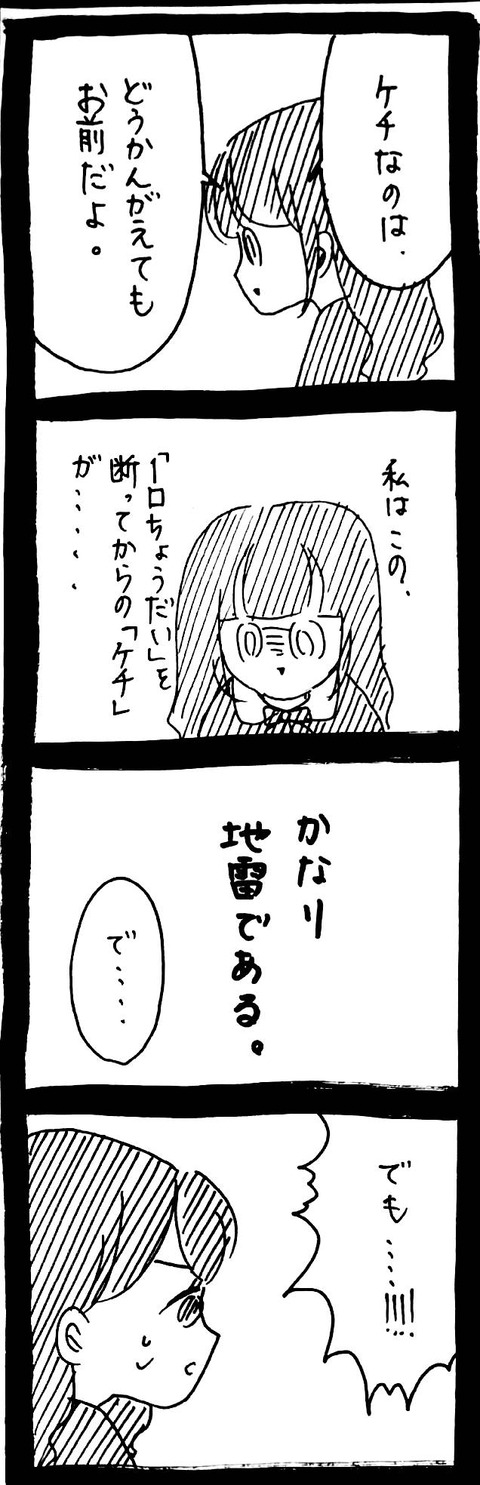 ケチなのは、
どうかんがえても
お前だよ。
私はこの、
「1口ちょうだい」を
断ってからの「ケチ」
が‥‥、
かなり
地雷である。
で‥‥
でも‥‥!!!!